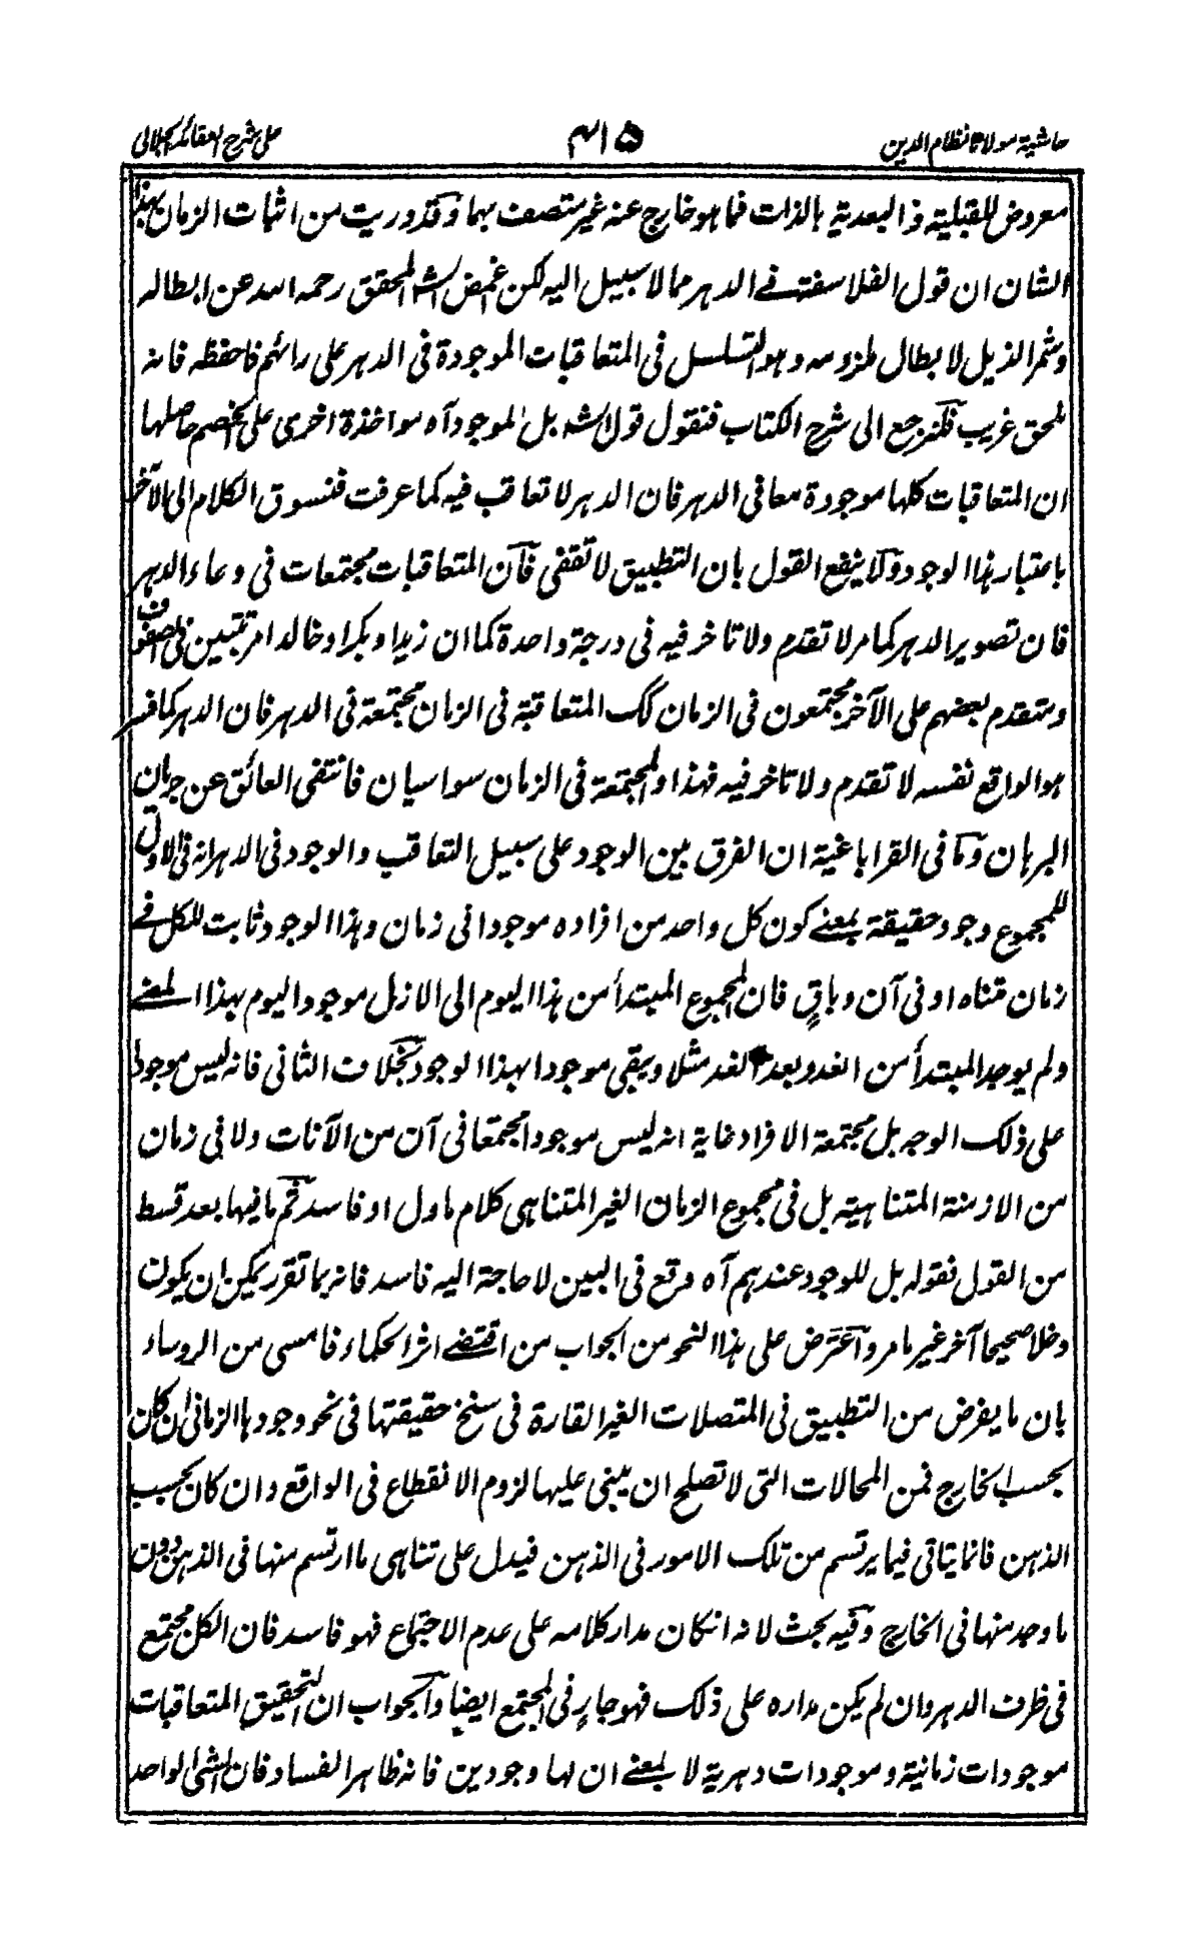 حاشية مولانا نظام الدين
٤١٥
على شرح العقائد الجلالى
معروض للقبلية والبعدية بالذات فما هو خارج عنه غير متصف بهما وقد دريت من اثبات الزمان بهذا
الشان ان قول الفلاسفة فى الدهر مما لا سبيل اليه لكن غمض الشه المحقق رحمه الله عن ابطاله
وشمر الذيل لابطال ملزومه وهو التسلسل فى المتعاقبات الموجودة فى الدهر على رائهم فاحفظه فانه
لمحق غريب فلنرجع الى شرح الكتاب فنقول قول الشه بل الموجود آه مواخذة اخرى على الخصم حاصلها
ان المتعاقبات كلها موجودة معا فى الدهر فان الدهر لا تعاقب فيه كما عرفت فنسوق الكلام الى الآخر
باعتبار هذا الوجود ولا ينفع القول بان التطبيق لا تقفى فان المتعاقبات مجتمعات فى وعاء الدهر
فان تصوير الدهر كما مر لا تقدم ولا تاخر فيه فى درجة واحدة كما ان زيدا وبكرا وخالدا مرتبين فى الصفوف
ومتقدم بعضهم على الآخر مجتمعون فى الزمان كك المتعاقبة فى الزمان مجتمعة فى الدهر فان الدهر كما فسر
هو الواقع نفسه لا تقدم ولا تاخر فيه فهذا والمجتمعة فى الزمان سواسيان فانتفى العائق عن جريان
البرهان وما فى القراباغية ان الفرق بين الوجود على سبيل التعاقب والوجود فى الدهر انه فى الاول
للمجموع وجود حقيقة بمعنے كون كل واحد من افراده موجودا فى زمان وهذا الوجود ثابت للكل فے
زمان متناه او فى آن وباقٍ فان المجموع المبتدأ من هذا اليوم الى الازل موجود اليوم بهذا المعنے
ولم يوجد المبتدأ من الغد وبعد الغد مثلا ويبقى موجودا بهذا الوجود بخلاف الثانى فانه ليس موجودا
على ذلك الوجه بل مجتمعة الافراد غاية انه ليس موجودا مجتمعا فى آن من الآنات ولا فى زمان
من الازمنة المتناهية بل فى مجموع الزمان الغير المتناهى كلام ماول او فاسد ثم ما فيها بعد قسط
من القول نقوله بل للوجود عندهم آه وقع فى البين لا حاجة اليه فاسد فانه بما تقرر يمكن ان يكون
دخلا صحيحا آخر غير ما مر واعترض على هذا النحو من الجواب من اقتضے اثر الحكماء فامسى من الروساء
بان ما يفرض من التطبيق فى المتصلات الغير القارة فى سنخ حقيقتها فى نحو وجودها الزمانى ان كان
بحسب الخارج فمن المحالات التى لا تصلح ان يبنى عليها لزوم الانقطاع فى الواقع وان كان بحسب
الذهن فانما يتاتى فيما يرتسم من تلك الامور فى الذهن فيدل على تناهى ما ارتسم منها فى الذهن دون
ما وجد منها فى الخارج وفيه بحث لانه انكان مدار كلامه على عدم الاجتماع فهو فاسد فان الكل مجتمع
فى ظرف الدهر وان لم يكن مداره على ذلك فهو جارٍ فى المجتمع ايضا والجواب ان التحقيق المتعاقبات
موجودات زمانية وموجودات دهرية لا بمعنے ان لها وجودين فانه ظاهر الفساد فان الشئ الواحد